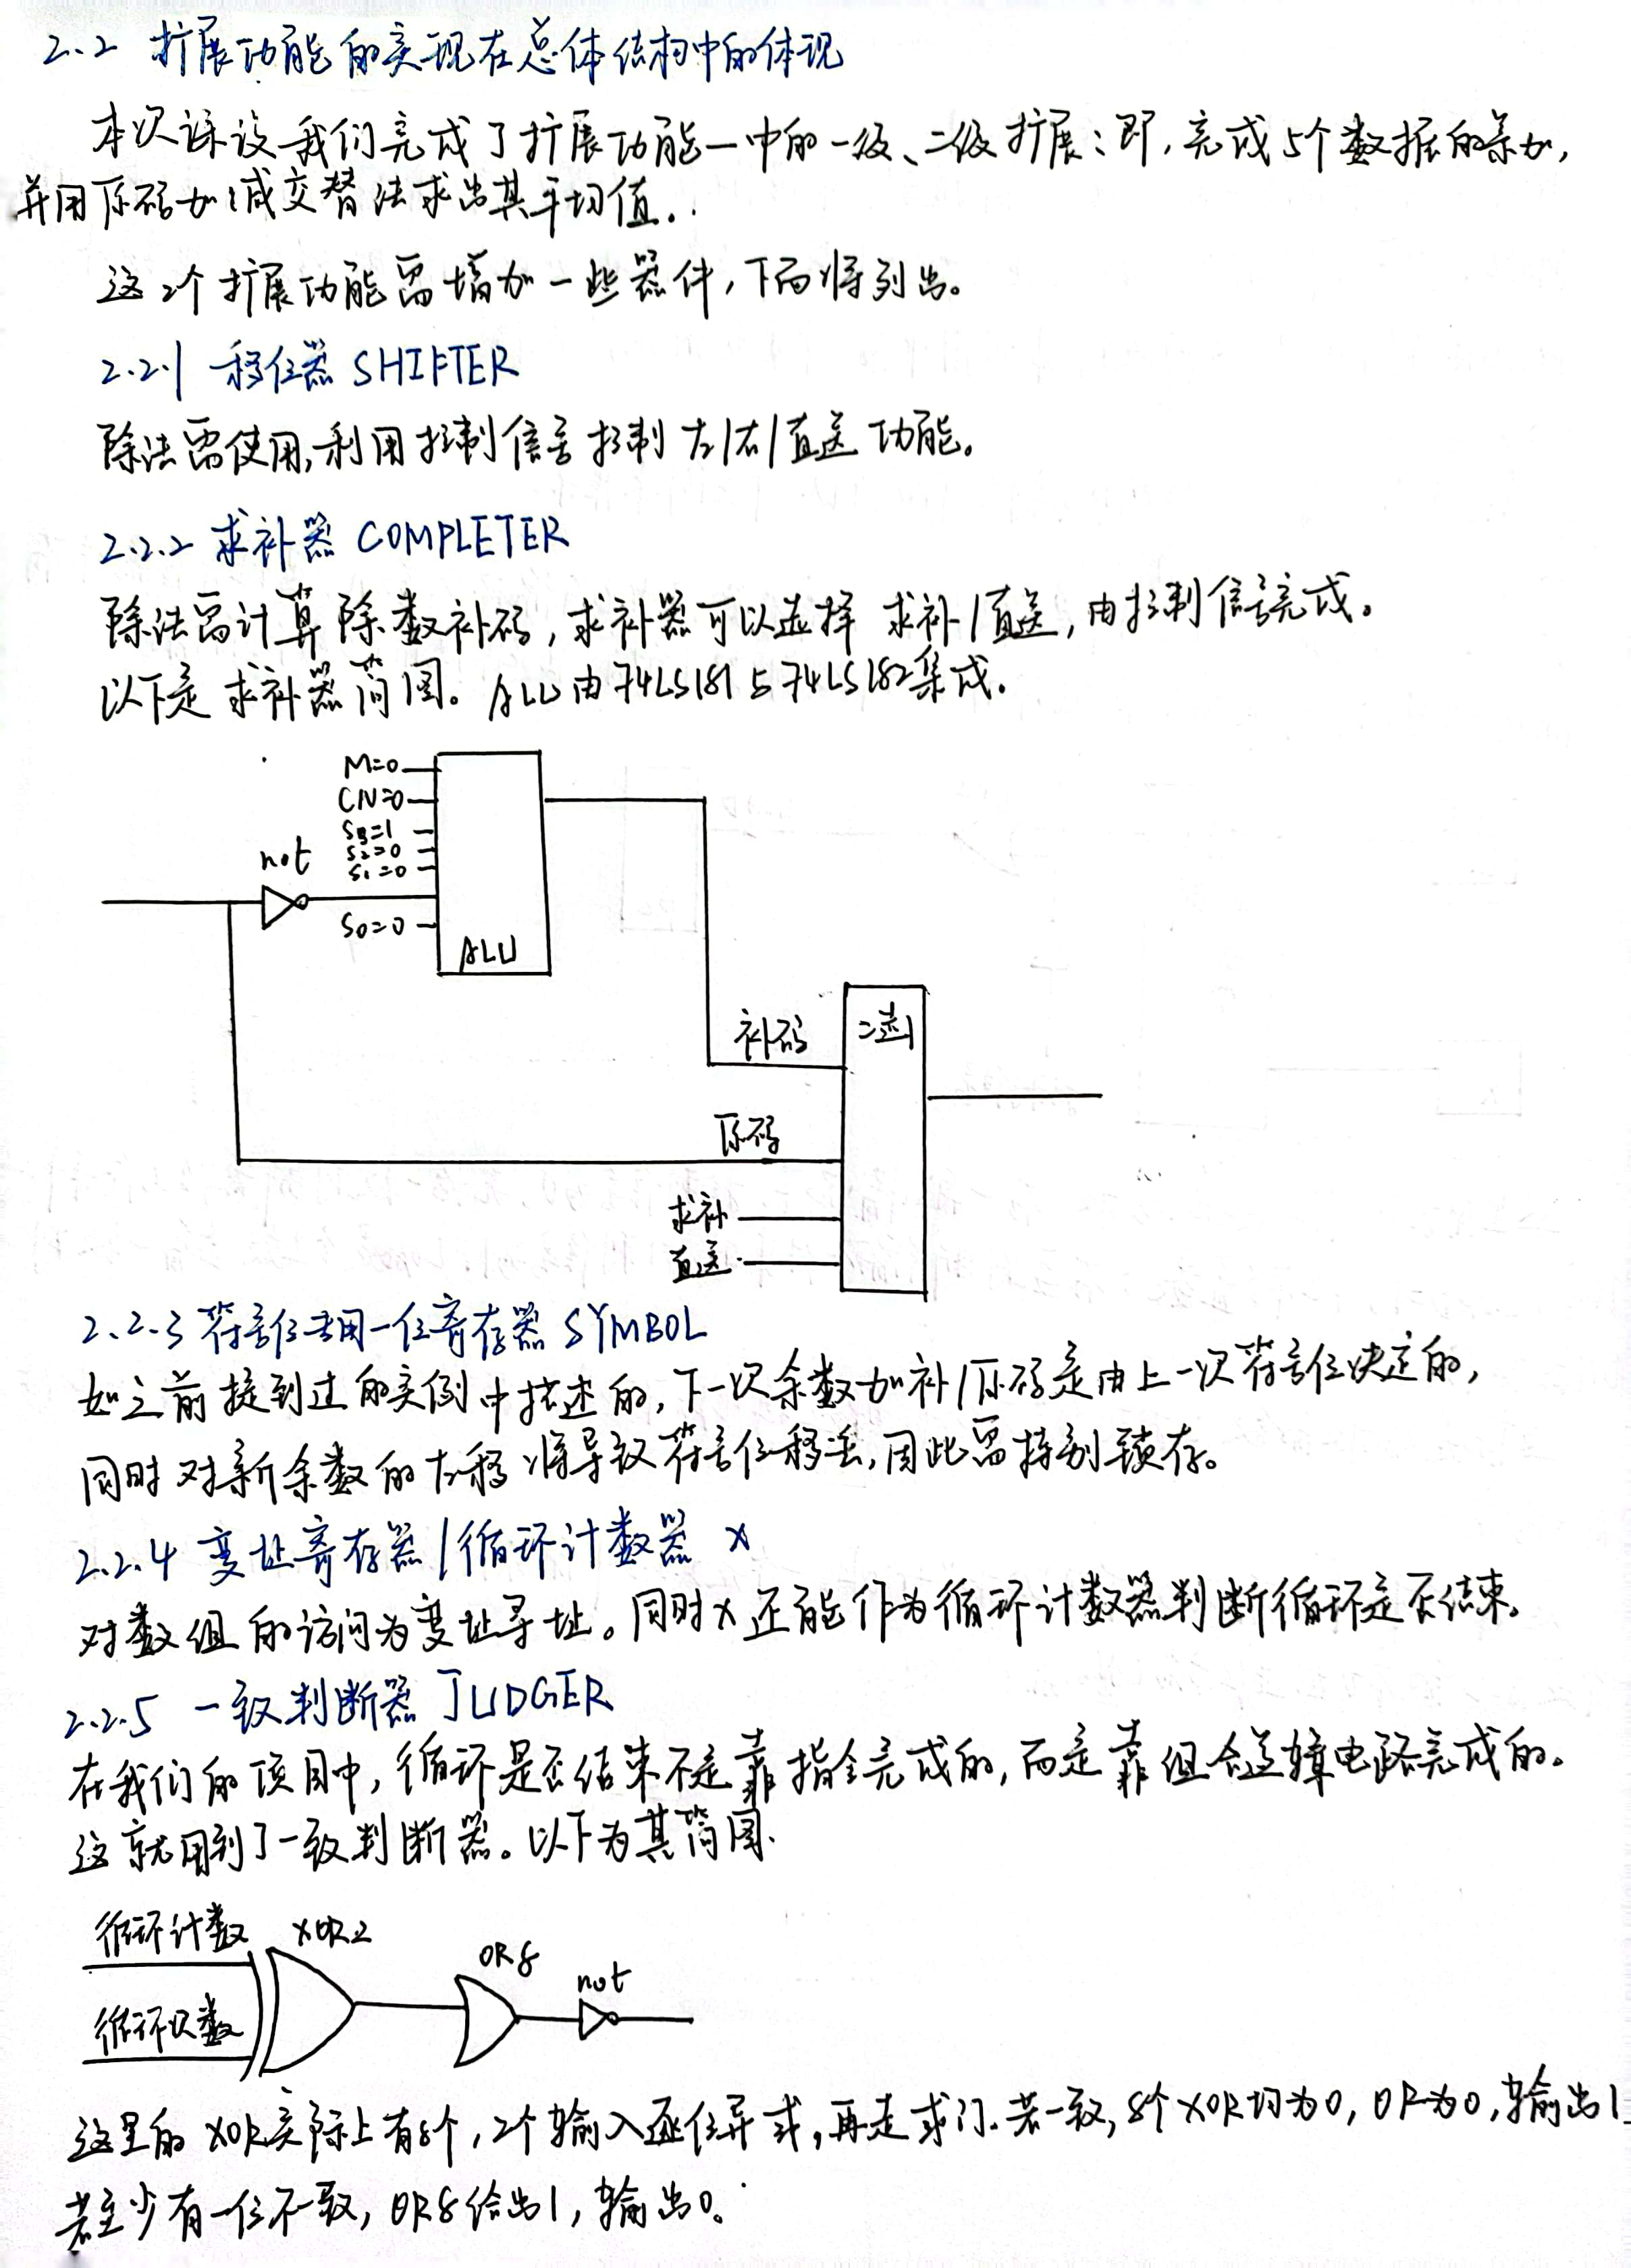 2.2 扩展功能的实现在总体结构中的体现
本次课设我们完成了扩展功能一中的一级、二级扩展：即，完成5个数据的累加，
并用原码加减交替法求出其平均值。
这2个扩展功能需增加一些器件，下面将列出。
2.2.1 移位器 SHIFTER
除法需使用，利用控制信号控制 左/右/直送 功能。
2.2.2 求补器 COMPLETER
除法需计算除数补码，求补器可以选择 求补/直送，由控制信号完成。
以下是求补器简图。ALU由74LS181与74LS182集成。
M=0
CN=0
S3=1
S2=0
S1=0
not
S0=0
ALU
补码
二选1
原码
求补
直送
2.2.3 符号位专用一位寄存器 SYMBOL
如之前提到过的实例中描述的，下一次余数加补/原码是由上一次符号位决定的，
同时对新余数的左移将导致符号位移丢，因此需特别锁存。
2.2.4 变址寄存器/循环计数器 X
对数组的访问为变址寻址。同时X还能作为循环计数器判断循环是否结束。
2.2.5 一致判断器 JUDGER
在我们的项目中，循环是否结束不是靠指令完成的，而是靠组合逻辑电路完成的。
这就用到了一致判断器。以下为其简图.
循环计数
XOR2
OR8
not
循环次数
这里的XOR实际上有8个，2个输入逐位异或，再走或门.若一致，8个XOR均为0，OR为0，输出1
若至少有一位不一致，OR8给出1，输出0。